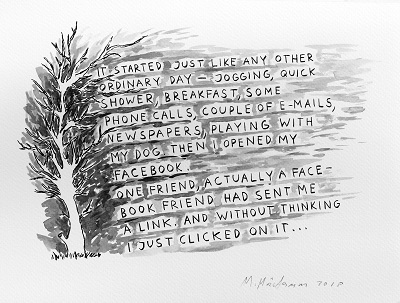 IT STARTED JUST LIKE ANY OTHER
ORDINARY DAY – JOGGING, QUICK
SHOWER, BREAKFAST, SOME
PHONE CALLS, COUPLE OF E-MAILS,
NEWSPAPERS, PLAYING WITH
MY DOG. THEN I OPENED MY
FACEBOOK.
ONE FRIEND, ACTUALLY A FACE-
BOOK FRIEND HAD SENT ME
A LINK. AND WITHOUT THINKING
I JUST CLICKED ON IT...
2010